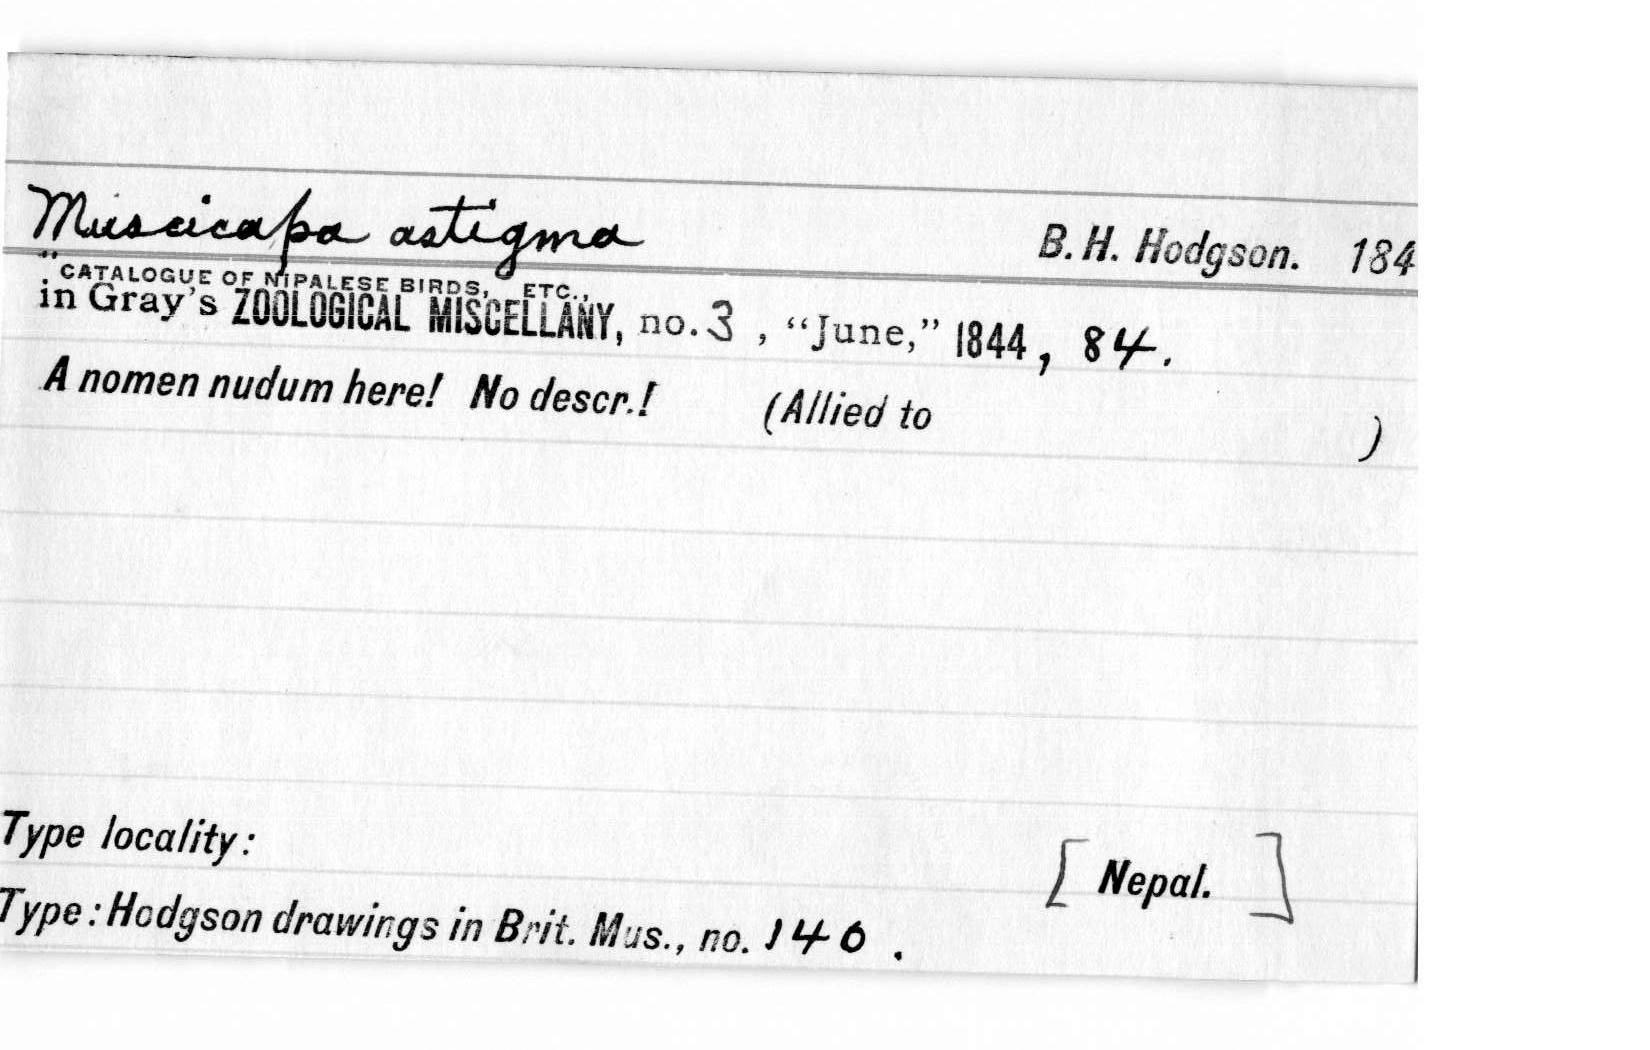 Muscicapa astigma B. H. Hodgson. 184
"CATALOGUE OF NIPALESE BIRDS, ETC.,
in Gray's ZOOLOGICAL MISCELLANY, no. 3 , “June,” 1844, 84.
A nomen nudum here! No descr.! (Allied to )
Type locality: [ Nepal. ]
Type: Hodgson drawings in Brit. Mus., no. 140 .